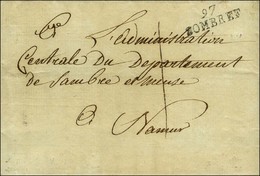 97
SOMBREF
L'administration
Centrale du Departement
de Sambre et meuse
a
Namur